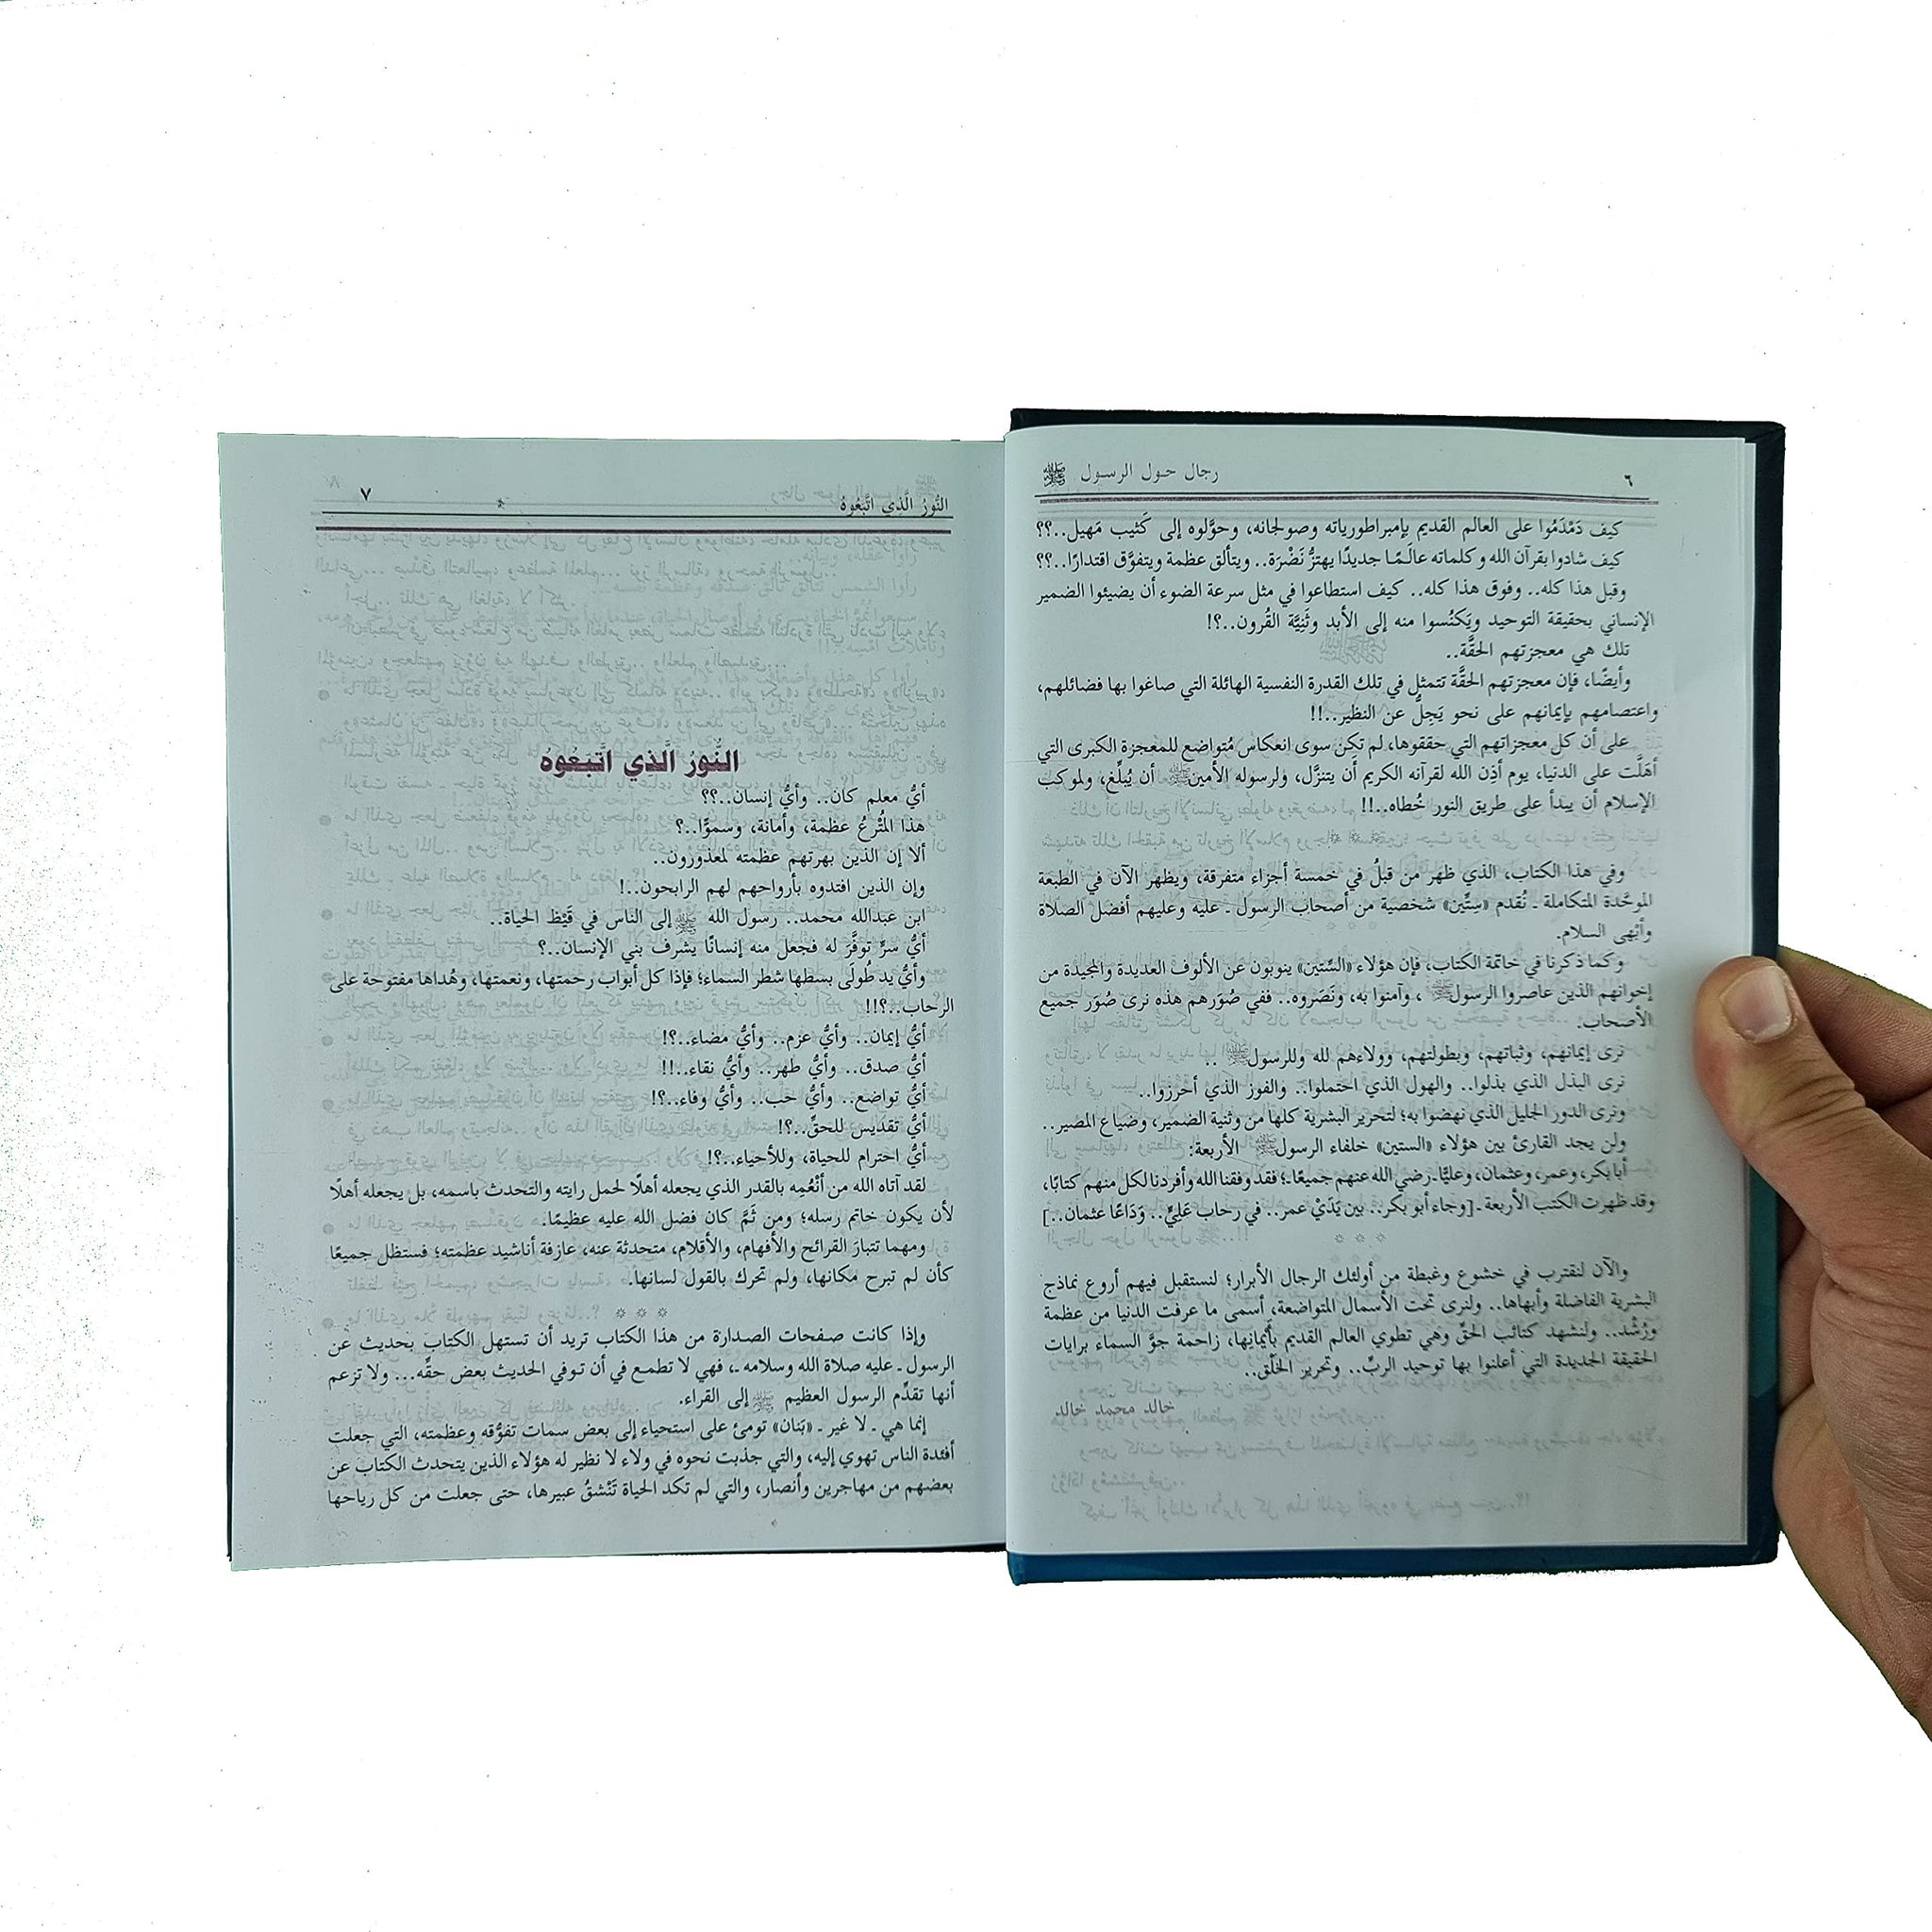 ٦
رجال حول الرسول ﷺ
كيف دَمْدَمُوا على العالم القديم بإمبراطورياته وصولجانه، وحوَّلوه إلى كَثيب مَهيل..؟؟
كيف شادوا بقرآن الله وكلماته عالَمًا جديدًا يهتزُّ نَضْرَة.. ويتألق عظمة ويتفوَّق اقتدارًا..؟؟
وقبل هذا كله.. وفوق هذا كله.. كيف استطاعوا في مثل سرعة الضوء أن يضيئوا الضمير
الإنساني بحقيقة التوحيد ويَكنُسوا منه إلى الأبد وثَنِيَّة القُرون..؟!
تلك هي معجزتهم الحَقَّة..
وأيضًا، فإن معجزتهم الحَقَّة تتمثل في تلك القدرة النفسية الهائلة التي صاغوا بها فضائلهم،
واعتصامهم بإيمانهم على نحو يَجِلُّ عن النظير..!!
على أن كل معجزاتهم التي حققوها، لم تكن سوى انعكاس مُتواضع للمعجزة الكبرى التي
أهَلَّت على الدنيا، يوم أذِن الله لقرآنه الكريم أن يتنزَّل، ولرسوله الأمين ﷺ أن يُبلِّغ، ولموكب
الإسلام أن يبدأ على طريق النور خُطاه..!!
وفي هذا الكتاب، الذي ظهر من قبلُ في خمسة أجزاء متفرقة، ويظهر الآن في الطبعة
الموحَّدة المتكاملة ـ نُقدم «سِتِّين» شخصية من أصحاب الرسول ـ عليه وعليهم أفضل الصلاة
وأبْهى السلام.
وكما ذكرنا في خاتمة الكتاب، فإن هؤلاء «السِّتين» ينوبون عن الألوف العديدة والمجيدة من
إخوانهم الذين عاصروا الرسول ﷺ، وآمنوا به، ونَصَروه.. ففي صُوَرهم هذه نرى صُوَر جميع
الأصحاب.
نرى إيمانهم، وثباتهم، وبطولتهم، وولاءهم لله وللرسول ﷺ ..
نرى البذل الذي بذلوا.. والهول الذي احتملوا.. والفوز الذي أحرزوا..
ونرى الدور الجليل الذي نهضوا به؛ لتحرير البشرية كلها من وثنية الضمير، وضياع المصير..
ولن يجد القارئ بين هؤلاء «الستين» خلفاء الرسول ﷺ الأربعة:
أبا بكر، وعمر، وعثمان، وعليًّا ـ رضي الله عنهم جميعًا ـ؛ فقد وفقنا الله وأفردنا لكل منهم كتابًا،
وقد ظهرت الكتب الأربعة ـ [وجاء أبو بكر.. بين يَدَيْ عمر.. في رحاب عَلِيٍّ.. وَدَاعًا عثمان..]
والآن لنقترب في خشوع وغبطة من أولئك الرجال الأبرار؛ لنستقبل فيهم أروع نماذج
البشرية الفاضلة وأبهاها.. ولنرى تحت الأسمال المتواضعة، أسمى ما عرفت الدنيا من عظمة
ورُشْد.. ولنشهد كتائب الحقِّ وهي تطوي العالم القديم بأَيمانِها، زاحمة جوَّ السماء برايات
الحقيقة الجديدة التي أعلنوا بها توحيد الربِّ.. وتحرير الخَلْق..
خالد محمد خالد
النُّورُ الَّذي اتَّبَعُوهُ
٧
النُّورُ الَّذِي اتَّبَعُوهُ
أيُّ معلم كان.. وأيُّ إنسان..؟؟
هذا المُتْرعُ عظمة، وأمانة، وسموًّا..؟
ألا إن الذين بهرتهم عظمته لمعذورون..
وإن الذين افتدوه بأرواحهم لهم الرابحون..!
ابن عبدالله محمد.. رسول الله ﷺ إلى الناس في قَيْظ الحياة..
أيُّ سرٍّ توفَّرَ له فجعل منه إنسانًا يشرف بني الإنسان..؟
وأيُّ يد طُولَى بسطها شطر السماء؛ فإذا كل أبواب رحمتها، ونعمتها، وهُداها مفتوحة على
الرحاب..؟!!
أيُّ إيمان.. وأيُّ عزم.. وأيُّ مضاء..؟!
أيُّ صدق.. وأيُّ طهر.. وأيُّ نقاء..!!
أيُّ تواضع.. وأيُّ حب.. وأيُّ وفاء..؟!
أيُّ تقديس للحقِّ..؟!
أيُّ احترام للحياة، وللأحياء..؟!
لقد آتاه الله من أنْعُمِه بالقدر الذي يجعله أهلًا لحمل رايته والتحدث باسمه، بل يجعله أهلًا
لأن يكون خاتم رسله؛ ومن ثَمَّ كان فضل الله عليه عظيمًا.
ومهما تتبارَ القرائح والأفهام، والأقلام، متحدثة عنه، عازفة أناشيد عظمته؛ فستظل جميعًا
كأن لم تبرح مكانها، ولم تحرك بالقول لسانها.
وإذا كانت صفحات الصدارة من هذا الكتاب تريد أن تستهل الكتاب بحديث عن
الرسول ـ عليه صلاة الله وسلامه ـ، فهي لا تطمع في أن توفي الحديث بعض حقِّه... ولا تزعم
أنها تقدِّم الرسول العظيم ﷺ إلى القراء.
إنما هي ـ لا غير ـ «بَنان» تومئ على استحياء إلى بعض سمات تفوُّقه وعظمته، التي جعلت
أفئدة الناس تهوي إليه، والتي جذبت نحوه في ولاء لا نظير له هؤلاء الذين يتحدث الكتاب عن
بعضهم من مهاجرين وأنصار، والتي لم تكد الحياة تَنْشقُ عبيرها، حتى جعلت من كل رياحها